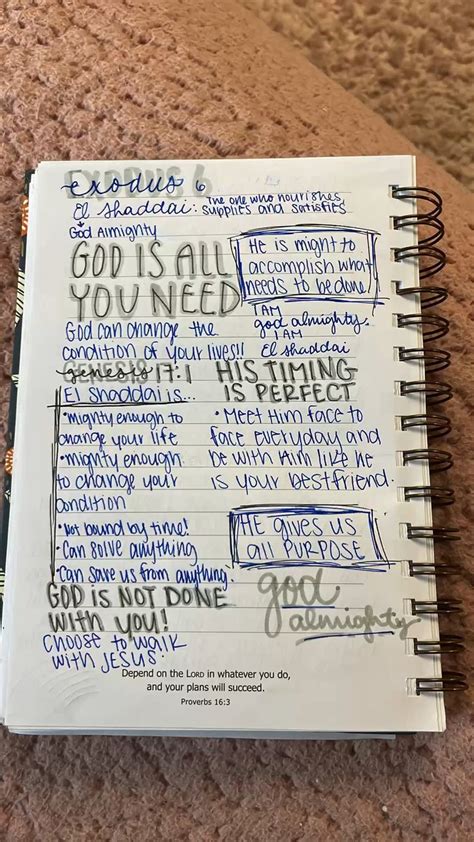 exodus 6
El Shaddai: The one who nourishes
supplies and satisfies
God Almighty
GOD IS ALL
YOU NEED
He is might to
accomplish what
needs to be done
I AM
god almighty.
I AM
El shaddai
God can change the
condition of your lives!!
Genesis 17:1
HIS TIMING
IS PERFECT
El Shaddai is...
• mighty enough to
change your life
• mighty enough
to change your
condition
• Not bound by time!
• Can solve anything
• Can save us from anything.
• Meet Him face to
face everyday and
be with Him like he
is your bestfriend.
HE gives us
all PURPOSE
GOD IS NOT DONE
WITH YOU!
god
almighty
Choose to walk
with JESUS!
Depend on the LORD in whatever you do,
and your plans will succeed.
Proverbs 16:3